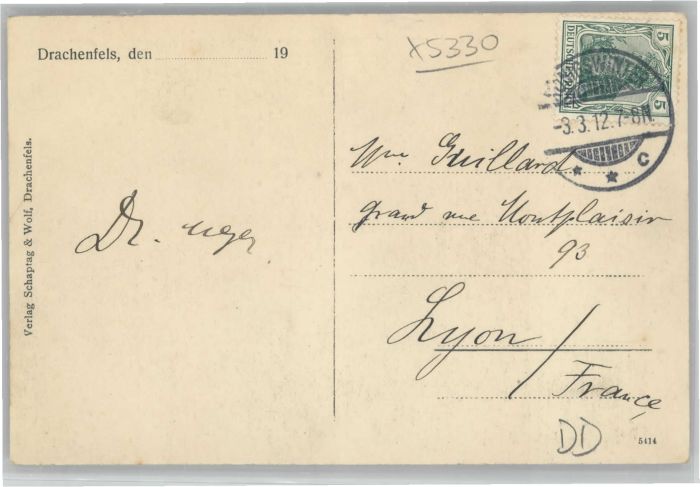 Drachenfels, den 19
x5330
5 DEUTSCHES REICH 5
KÖNIGSWINTER
-3.3.12.7-8N.
* * C
Verlag Schaptag & Wolf, Drachenfels.
Dr.
Guillard
grand rue Montplaisir
93
Lyon/
France
DD
5414